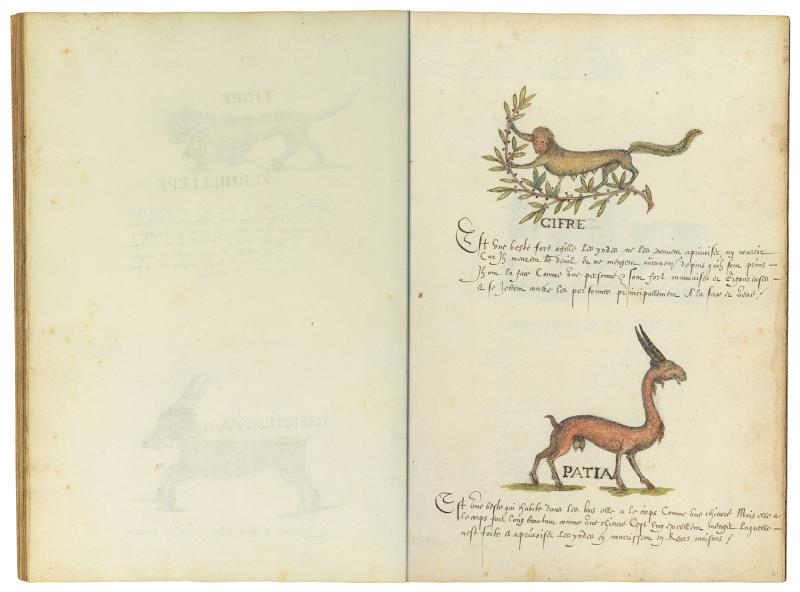 CIFRE
Est une beste fort agille les yndes ne les peuvent aprivoiser ny nourir
Car Ilz meurent de deuil de ne mengent aucunem depuis quilz sont prins
Ilz ont la face Comme une personne sont fort mauvaises et Rigoureuses
& se Jettent contre les personnes principallement A la face et
PATIA
Est une beste qui habite dans les bois elle a le corps Comme une chieure Mais elle a
le corps fort long broutant comme une chieure Cest ung excellent menger laquelle
nest forte a aprivoiser les yndes en nourrissent en leurs maisons
TIGRE
FERMILLIERE